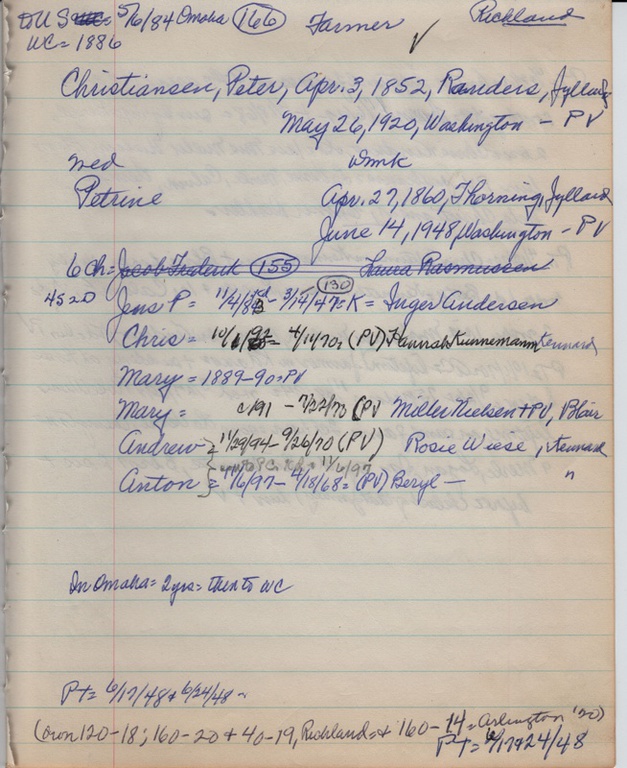 to U S 5/6/84 Omaha (166) Farmer ✓ Richland
WC = 1886
Christiansen, Peter, Apr. 3, 1852, Randers, Jylland
May 26, 1920, Washington - PV
wed Dmk
Petrine Apr. 27, 1860, Thorning, Jylland
June 14, 1948, Washington - PV
6 Ch = Jacob Frederik (155) Laura Rasmussen
4S 2D Jens P = 11/4/ - 3/14/47 = K = (130) Inger Andersen
Chris = 10/ - 4/11/70 = (PV) Hannah Kunnemann Kennard
Mary = 1889-90 = PV
Mary = c/91 - 7/22/73 (PV Miller Nielsen + PV, Blair
Andrew = 11/29/94 - 9/26/70 (PV) Rosie Wiese, Kennard
11/6/97
Anton = 11/6/97 - 4/18/68 = (PV) Beryl - "
In Omaha = 2 yrs = then to WC
PT = 6/17/48 + 6/24/48 -
(own 120-18; 160-20 + 40-19, Richland = + 160-14 = Arlington '20)
PT = 6/17+24/48